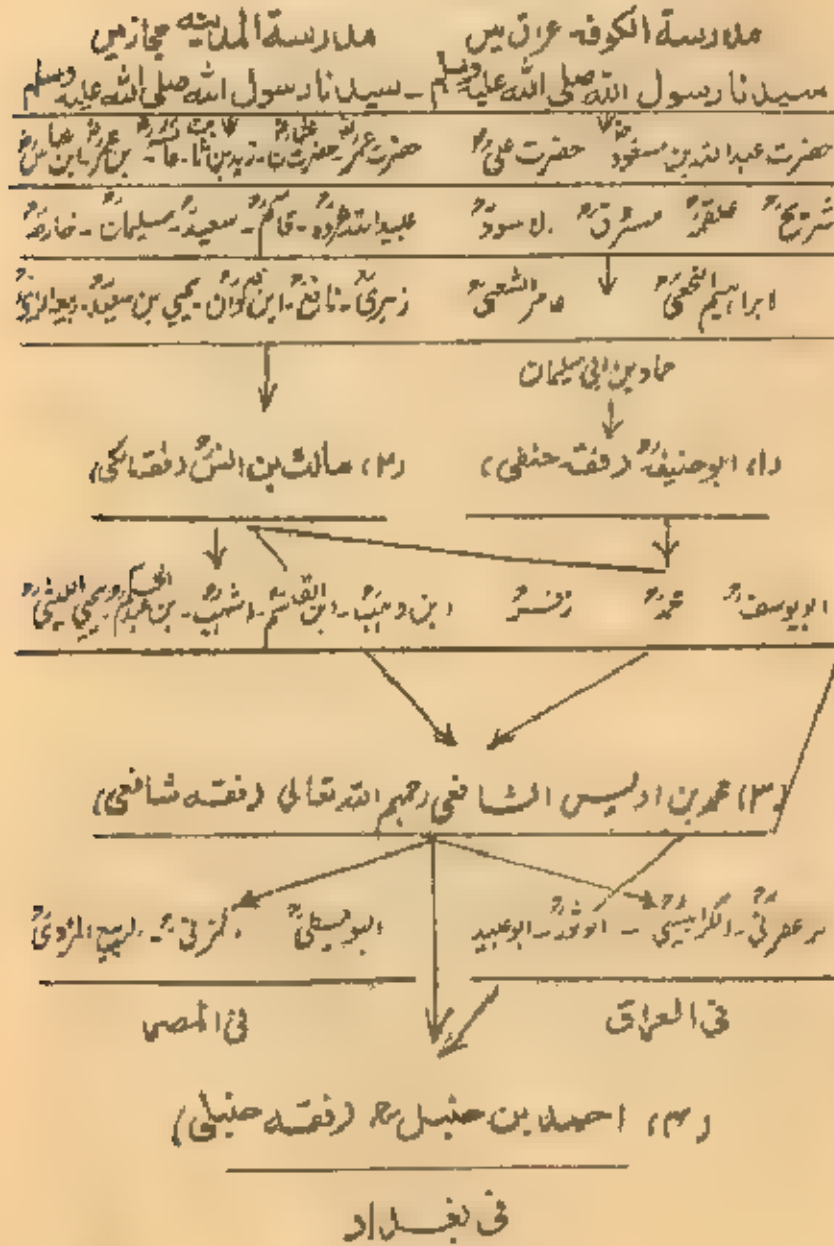 مدرسة الکوفہ عراق میں مدرسة المدینہ حجاز میں
سیدنا رسول اللہ صلی اللہ علیہ وسلم - سیدنا رسول اللہ صلی اللہ علیہ وسلم
حضرت عبداللہ بن مسعودؓ حضرت علیؓ حضرت عمرؓ - زید بن ثابت - ابن عمرؓ - ابن عباسؓ
شریحؒ علقمہؒ مسروقؒ الاسودؒ عبیداللہ عروہؒ - قاسمؒ - سعیدؒ - سلیمانؒ - خارجہؒ
ابراہیم النخعیؒ عامر الشعبیؒ زہریؒ - نافعؒ - ابن ذکوانؒ - یحیی بن سعیدؒ - ربیعہ الرائیؒ
حماد بن ابی سلیمان
(۱) ابوحنیفہؒ (فقہ حنفی) (۲) مالک بن انسؒ (فقہ مالکی)
ابویوسفؒ محمدؒ زفرؒ ابن وہبؒ - ابن القاسمؒ - اشہبؒ - ابن عبدالحکمؒ یحیی اللیثیؒ
(۳) محمد بن ادریس الشافعی رحمہم اللہ تعالی (فقہ شافعی)
زعفرانیؒ - الکرابیسیؒ - ابوثورؒ - ابوعبید البویطیؒ المزنیؒ - الربیع المرادیؒ
فی العراق فی المصر
(۴) احمد بن حنبلؒ (فقہ حنبلی)
فی بغداد